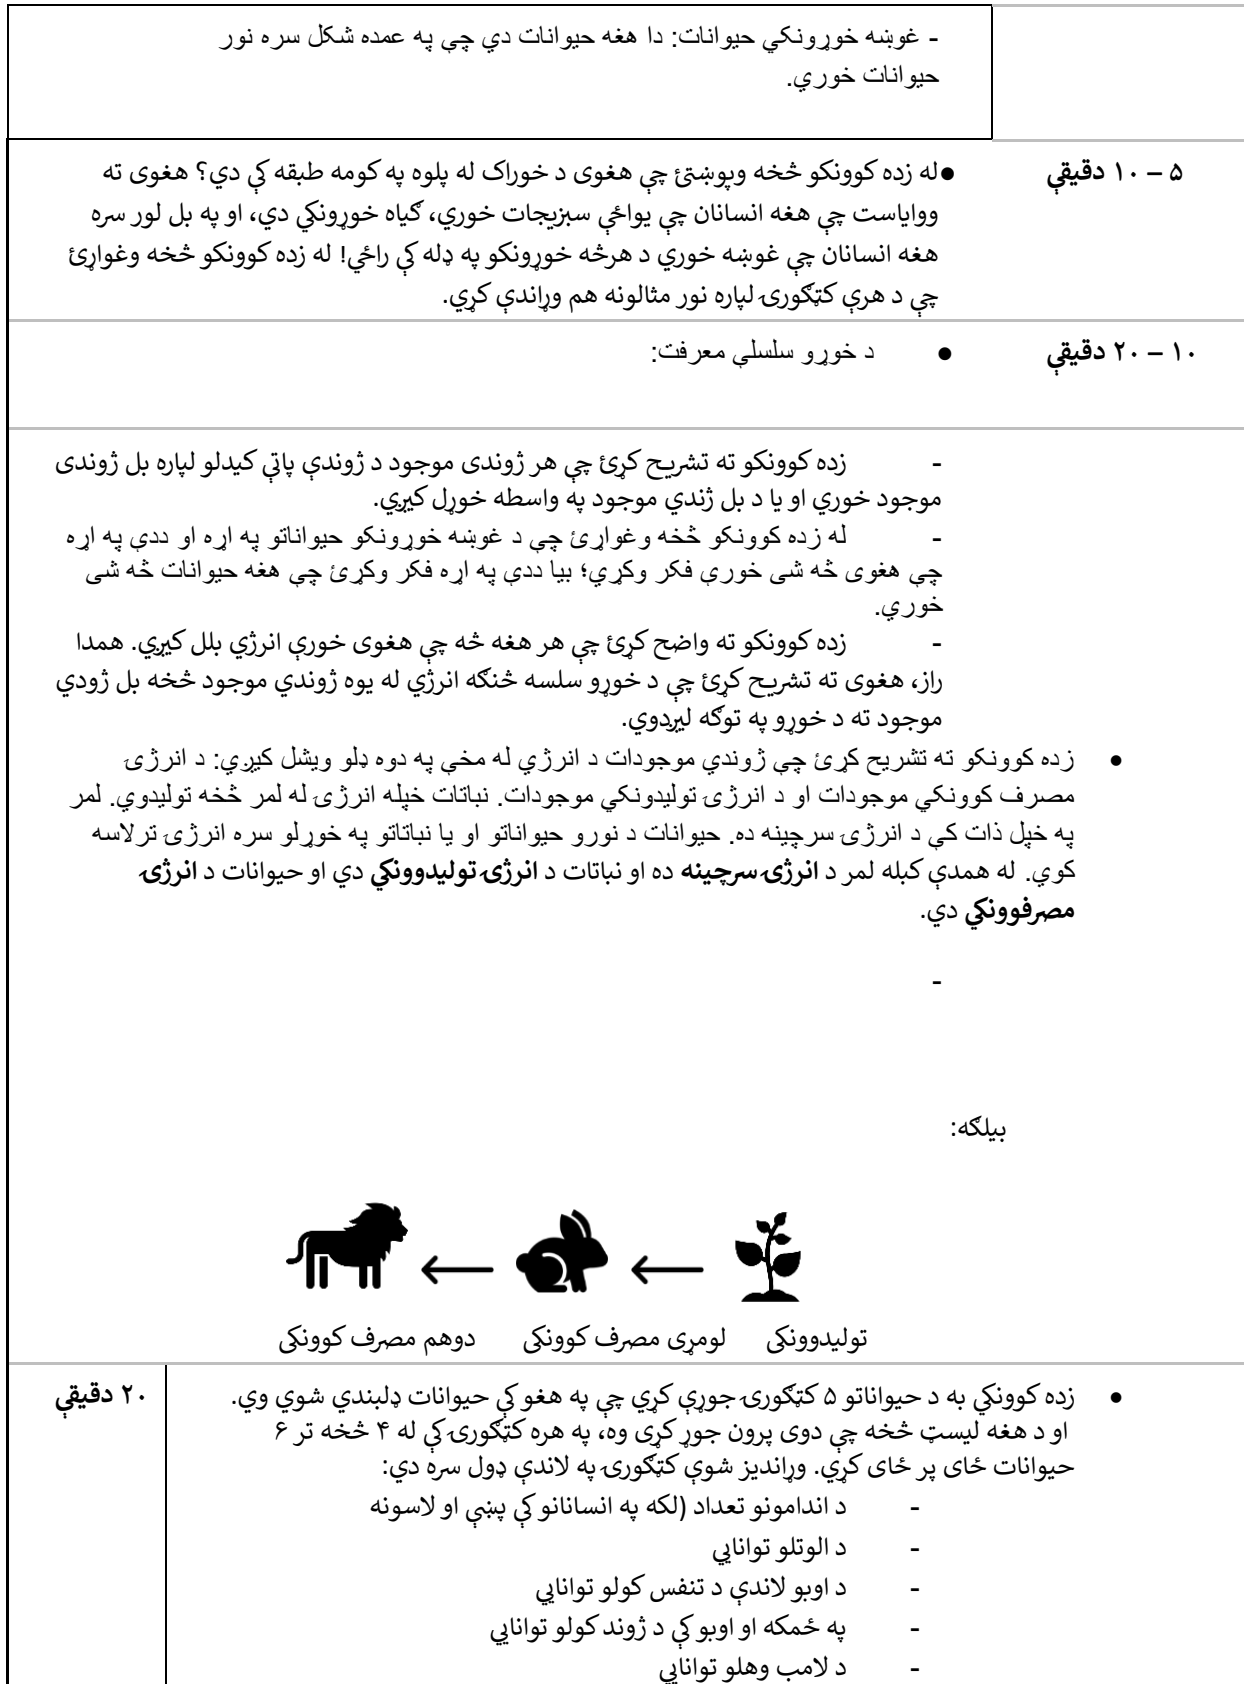 - غوښه خوړونکي حیوانات: دا هغه حیوانات دي چې په عمده شکل سره نور
حیوانات خوري.
۵ – ۱۰ دقیقې
●له زده کوونکو څخه وپوښتئ چې هغوی د خوراک له پلوه په کومه طبقه کې دي؟ هغوی ته
ووایاست چې هغه انسانان چې یواځې سبزیجات خوري، ګیاه خوړونکي دي، او په بل لور سره
هغه انسانان چې غوښه خوري د هرڅه خوړونکو په ډله کې راځي! له زده کوونکو څخه وغواړئ
چې د هرې کټګورۍ لپاره نور مثالونه هم وړاندې کړي.
۱۰ – ۲۰ دقیقې
● د خوړو سلسلې معرفت:
- زده کوونکو ته تشریح کړئ چې هر ژوندی موجود د ژوندې پاتې کیدلو لپاره بل ژوندی
موجود خوري او یا د بل ژندي موجود په واسطه خوړل کیږي.
- له زده کوونکو څخه وغواړئ چې د غوښه خوړونکو حیواناتو په اړه او ددې په اړه
چې هغوی څه شی خورې فکر وکړي؛ بیا ددې په اړه فکر وکړئ چې هغه حیوانات څه شی
خوري.
- زده کوونکو ته واضح کړئ چې هر هغه څه چې هغوی خورې انرژي بلل کیږي. همدا
راز، هغوی ته تشریح کړئ چې د خوړو سلسه څنګه انرژي له یوه ژوندي موجود څخه بل ژودي
موجود ته د خوړو په توګه لیږدوي.
● زده کوونکو ته تشریح کړئ چې ژوندي موجودات د انرژي له مخې په دوه ډلو ویشل کیږي: د انرژۍ
مصرف کوونکي موجودات او د انرژۍ تولیدونکي موجودات. نباتات خپله انرژۍ له لمر څخه تولیدوي. لمر
په خپل ذات کې د انرژۍ سرچینه ده. حیوانات د نورو حیواناتو او یا نباتاتو په خوړلو سره انرژۍ ترلاسه
کوي. له همدې کبله لمر د انرژۍ سرچینه ده او نباتات د انرژۍ تولیدوونکي دي او حیوانات د انرژۍ
مصرفوونکي دي.
-
بیلګه:
تولیدوونکی لومړی مصرف کوونکی دوهم مصرف کوونکی
۲۰ دقیقې
● زده کوونکي به د حیواناتو ۵ کټګورۍ جوړې کړي چې په هغو کې حیوانات ډلبندي شوي وي.
او د هغه لیسټ څخه چې دوی پرون جوړ کړی وه، په هره کټګورۍ کې له ۴ څخه تر ۶
حیوانات ځای پر ځای کړي. وړاندیز شوې کټګورۍ په لاندې ډول سره دي:
- د اندامونو تعداد (لکه په انسانانو کې پښې او لاسونه
- د الوتلو توانايي
- د اوبو لاندې د تنفس کولو توانايي
- په ځمکه او اوبو کې د ژوند کولو توانايي
- د لامب وهلو توانايي